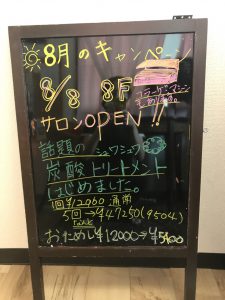 8月のキャンペーン
8/8 8F
コラーゲンマシン
サロンOPEN!!
話題の シュワシュワ
炭酸トリートメント
はじめました。
1回¥12960 通常
5回→¥47250(9504)
おためし¥12000→¥5400